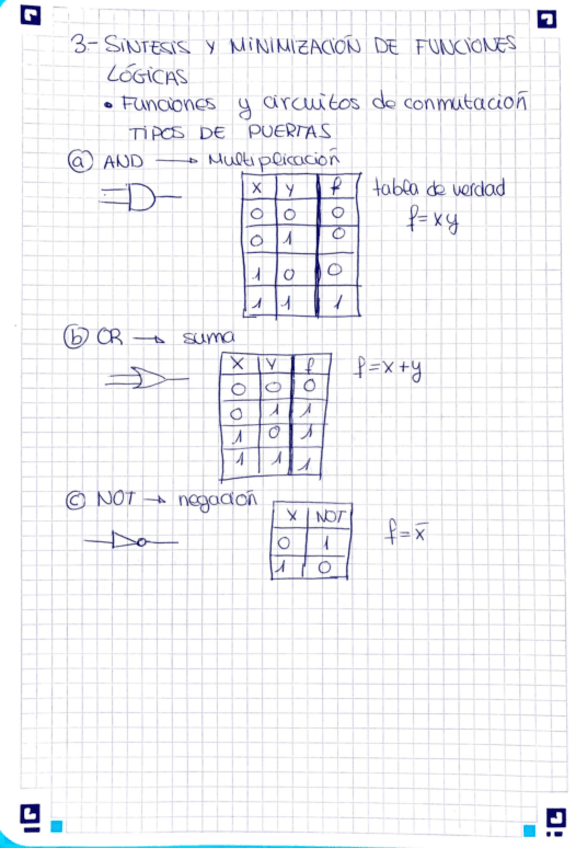 3- SÍNTESIS Y MINIMIZACIÓN DE FUNCIONES
LÓGICAS
• Funciones y circuitos de conmutación
TIPOS DE PUERTAS
ⓐ AND → Multiplicación
x y f tabla de verdad
0 0 0 f=xy
0 1 0
1 0 0
1 1 1
ⓑ OR → suma
x y f f=x+y
0 0 0
0 1 1
1 0 1
1 1 1
ⓒ NOT → negación
x NOT
0 1 f=x̄
1 0